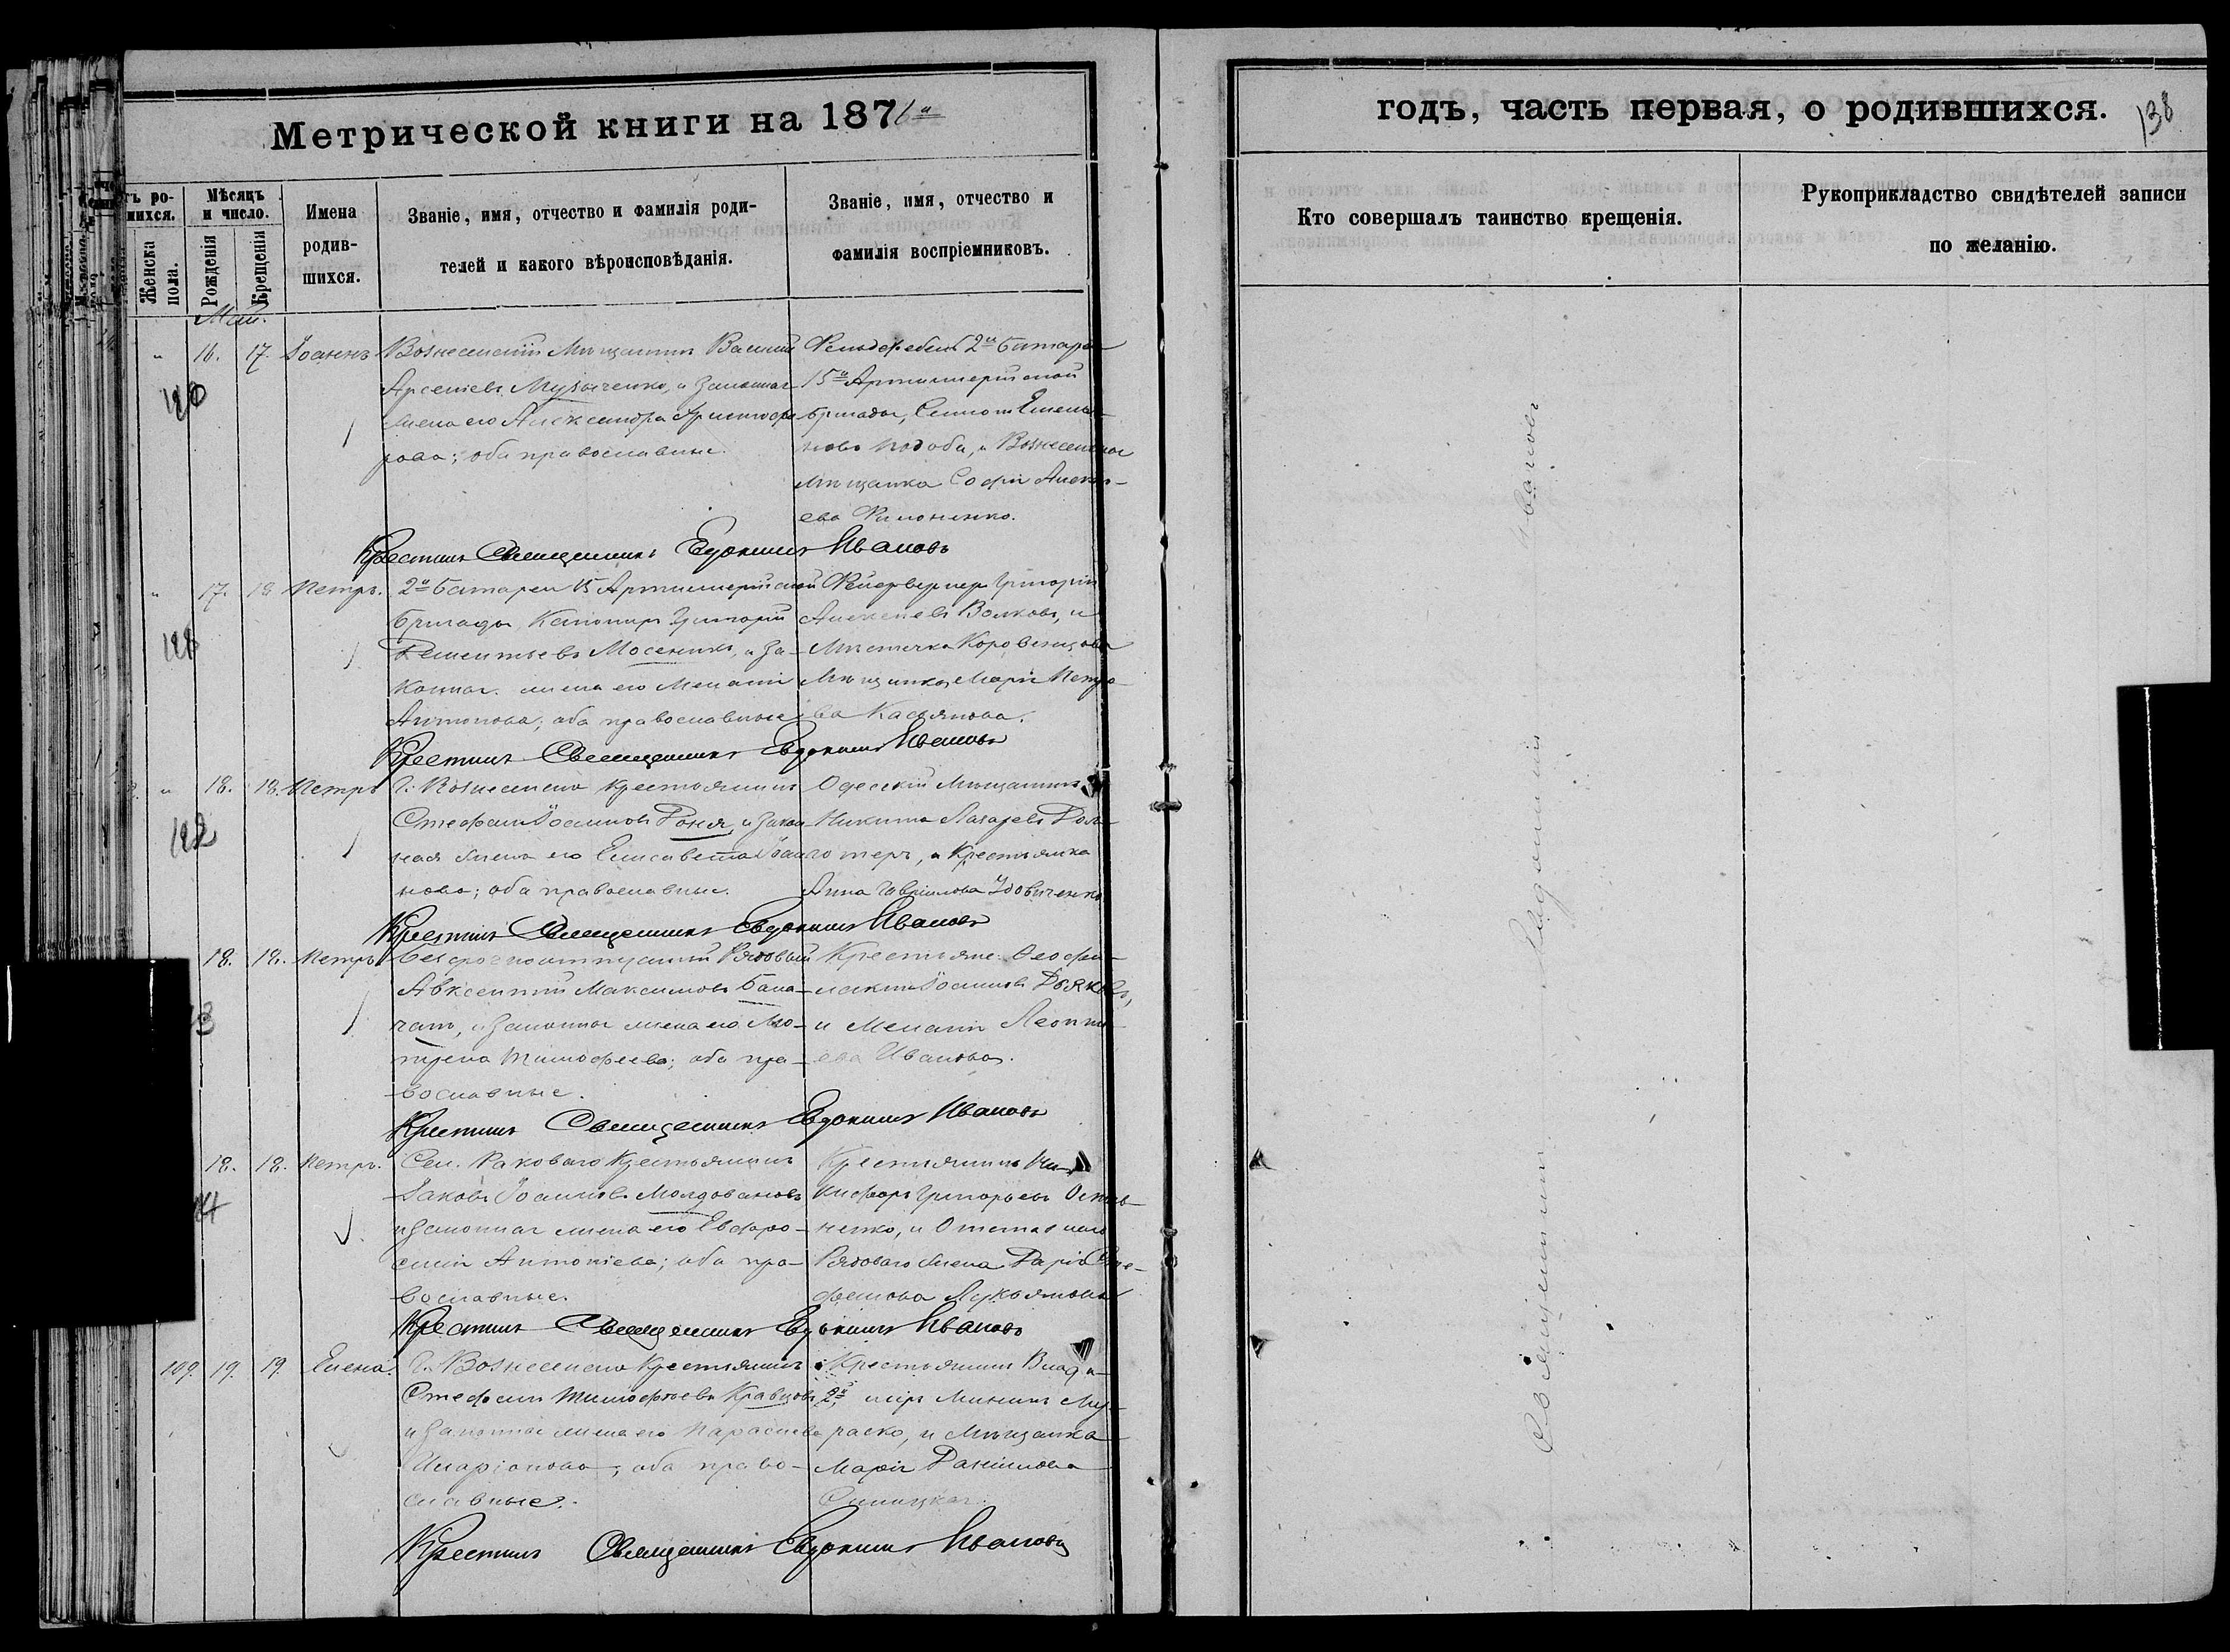 Метрической книги на 1871й
годъ, часть первая, о родившихся.
138
Мѣсяцъ
и число.
Женска
пола.
Рожденія
Крещенія
Имена
родив-
шихся.
Званіе, имя, отчество и фамилія роди-
телей и какого вѣроисповѣданія.
Званіе, имя, отчество и
фамилія воспріемниковъ.
Кто совершалъ таинство крещенія.
Рукоприкладство свидѣтелей записи
по желанію.
Май.
16. 17. Іоаннъ
Вознесенскій Мѣщанинъ Василій
Арсеніевъ Музыченко, и законная
жена его Александра Христофо
рова; оба православные.
Фельдфебель 2й батареи
15й Артиллерійской
бригады,
и Вознесенская
Мѣщанка Софія Алексѣ-
ева Филоненко.
Крестилъ Священникъ Евдокимъ Ивановъ
17. 18 Петръ.
2й батареи 15 Артиллерійской
бригады Канониръ Григорій
Дементьевъ Мосенко, и за-
конная жена его Меланія
Антонова; оба православные
Фейерверкеръ Григорій
Алексѣевъ Волковъ, и
Мѣстечка
Мѣщанка Марія Петро
ва Касьянова.
Крестилъ Священникъ Евдокимъ Ивановъ
18. 18. Петръ
г. Вознесенска Крестьянинъ
Стефанъ Іоанновъ Доня, и закон
ная жена его Елисавета Іоан
нова; оба православные.
Одесскій Мѣщанинъ
Никита Лазаревъ
и Крестьянка
Анна Гавріилова Удовиченко
Крестилъ Священникъ Евдокимъ Ивановъ
18. 18. Петръ
безсрочноотпускный Рядовый
Авксентій Максимовъ Бала-
чанъ, и законная жена его Мо-
трена Тимофеева; оба пра-
вославные.
Крестьяне: Феофи-
лактъ Іоанновъ Дьяковъ,
и Меланія Леонть
ева Иванова.
Крестилъ Священникъ Евдокимъ Ивановъ
18. 18. Петръ.
Сел. Раковаго Крестьянинъ
Іаковъ Іоанновъ Молдовановъ
и законная жена его Евфро-
синія Антоніева; оба пра-
вославные.
Крестьянинъ Ни-
кифоръ Григорьевъ
и Отставнаго
Рядоваго жена Дарія Сте-
фанова Лукьянова
Крестилъ Священникъ Евдокимъ Ивановъ
109. 19. 19. Елена.
г. Вознесенска Крестьянинъ
Стефанъ Тимофѣевъ Кравцовъ 2й
и законная жена его Параскева
Иларіонова; оба право-
славные.
Крестьянинъ Влади
міръ Мининъ Му-
раско, и Мѣщанка
Марія Даніилова
Синицкая.
Крестилъ Священникъ Евдокимъ Ивановъ
Священникъ Евдокимъ Ивановъ